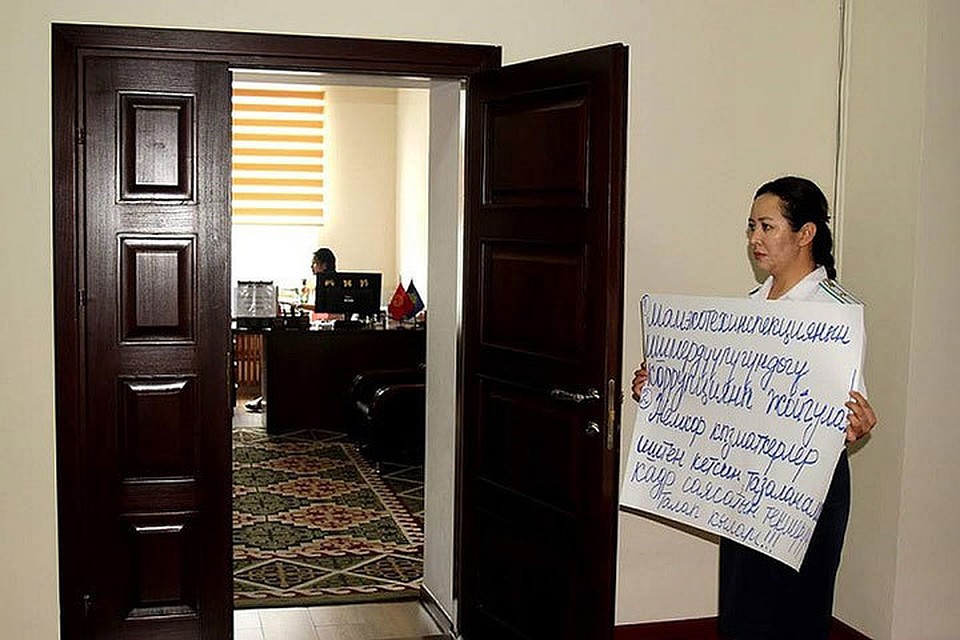 ① Мамэкотехинспекциянын
ишмердүүлүгүндөгү
коррупцияны жойгула
② Жемкор кызматкерлер
иштен кетсин, тазалансын
кадр саясатын текшерүүнү
Талап кылам!!!